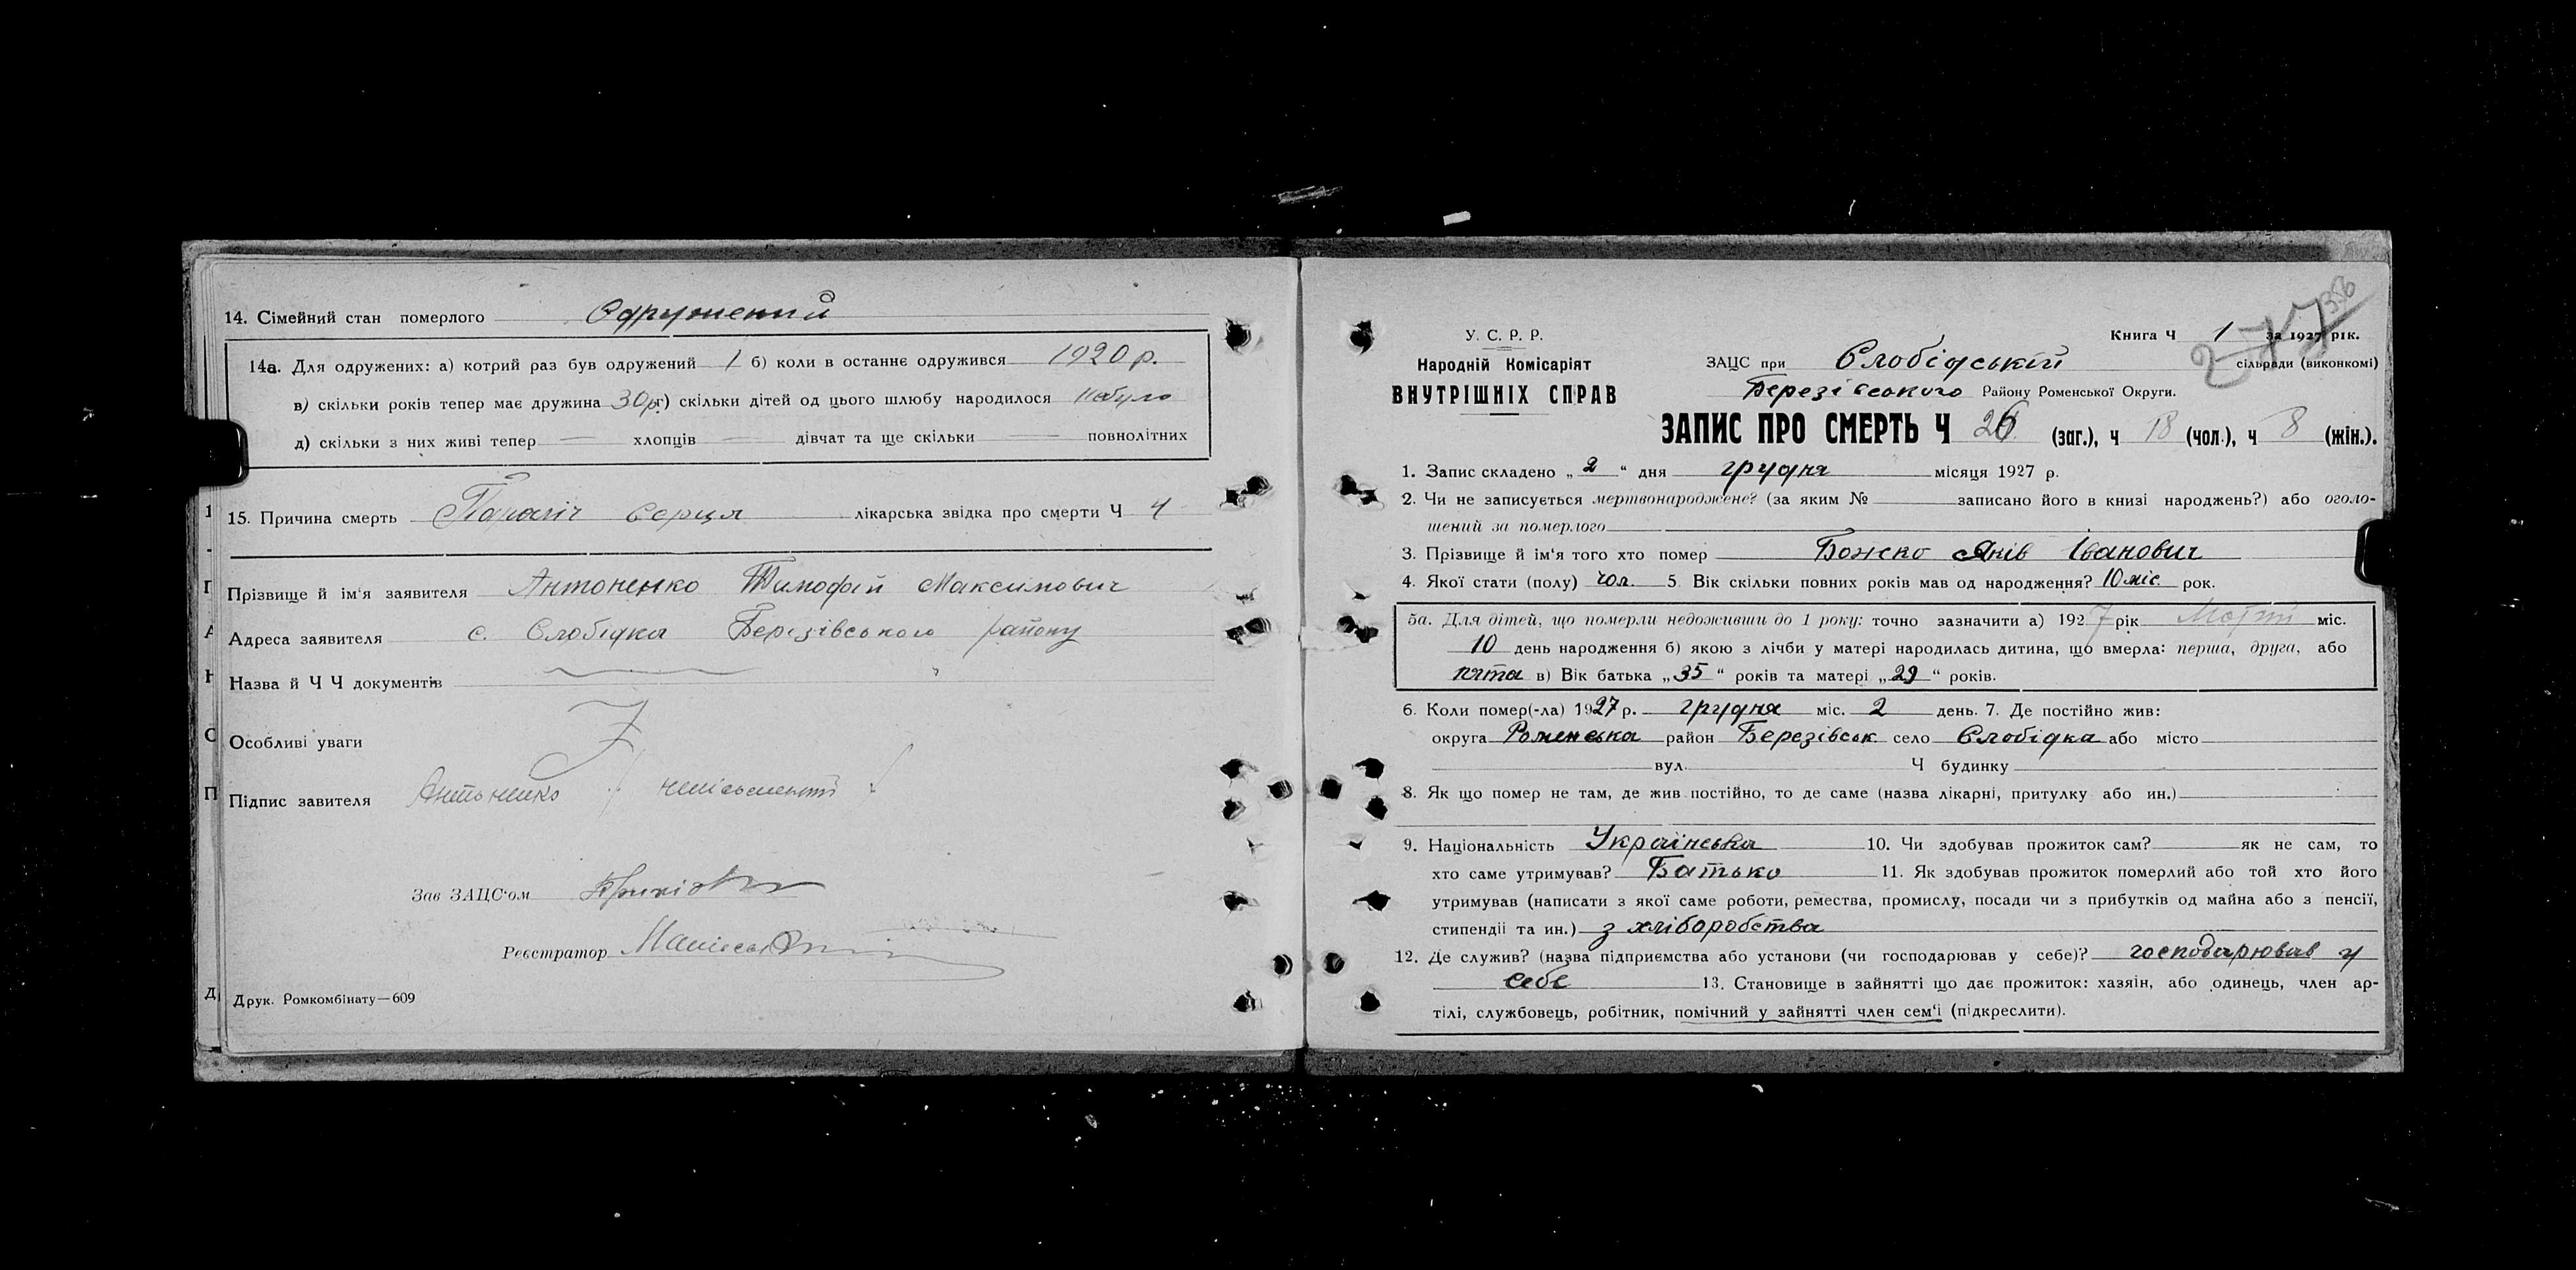 14. Сімейний стан померлого Одружений
14а. Для одружених: а) котрий раз був одружений 1 б) коли в останнє одружився 1920 р.
в) скільки років тепер має дружина 30 р. г) скільки дітей од цього шлюбу народилося небуло
д) скільки з них живі тепер — хлопців — дівчат та ще скільки — повнолітних
15. Причина смерть Параліч серця лікарська звідка про смерти Ч 4
Прізвище й ім'я заявителя Антоненко Тимофій Максимович
Адреса заявителя с. Слобідка Березівського району
Назва й Ч Ч документів
Особливі уваги
Підпис завителя Антоненко / неписьменний /
Зав ЗАЦС'ом
Реєстратор
Друк. Ромкомбінату—609
У. С. Р. Р.
Народній Комісаріят
ВНУТРІШНІХ СПРАВ
Книга Ч 1 за 1927 рік.
ЗАЦС при Слобідській сільради (виконкомі)
Березівського Району Роменської Округи.
ЗАПИС ПРО СМЕРТЬ Ч 26 (заг.), ч 18 (чол.), ч 8 (жін.).
1. Запис складено „2“ дня грудня місяця 1927 р.
2. Чи не записується мертвонароджене? (за яким № записано його в книзі народжень?) або оголо-
шений за померлого
3. Прізвище й ім'я того хто помер Божко Яків Іванович
4. Якої стати (полу) чол. 5. Вік скільки повних років мав од народження? 10 міс. рок.
5а. Для дітей, що померли недоживши до 1 року: точно зазначити а) 1927 рік міс.
10 день народження б) якою з лічби у матері народилась дитина, що вмерла: перша, друга, або
пята в) Вік батька „35“ років та матері „29“ років.
6. Коли помер(-ла) 1927 р. грудня міс. 2 день. 7. Де постійно жив:
округа Роменська район Березівськ. село Слобідка або місто
вул. Ч будинку
8. Як що помер не там, де жив постійно, то де саме (назва лікарні, притулку або ин.)
9. Національність Українська 10. Чи здобував прожиток сам? як не сам, то
хто саме утримував? Батько 11. Як здобував прожиток померлий або той хто його
утримував (написати з якої саме роботи, ремества, промислу, посади чи з прибутків од майна або з пенсії,
стипендії та ин.) з хліборобства
12. Де служив? (назва підприємства або установи (чи господарював у себе)? господарював у
себе 13. Становище в зайнятті що дає прожиток: хазяін, або одинець, член ар-
тілі, службовець, робітник, помічний у зайнятті член сем'ї (підкреслити).